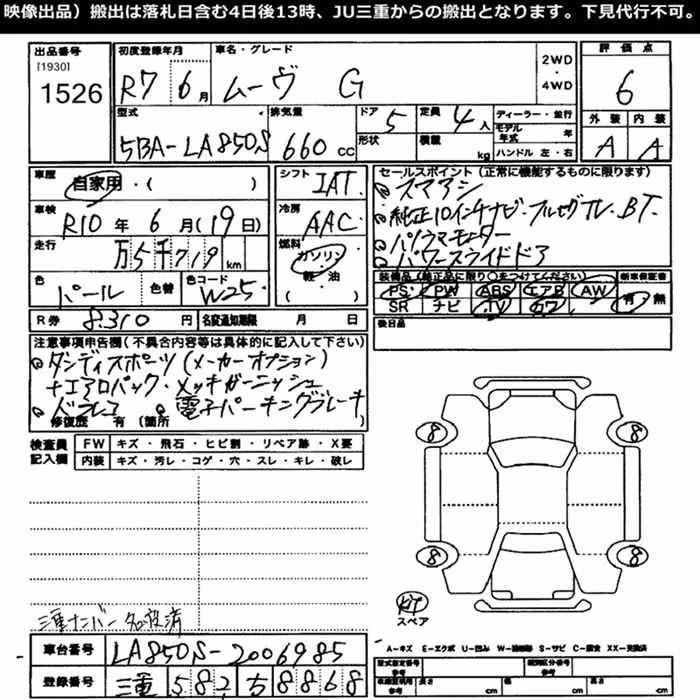 映像出品）搬出は落札日含む4日後13時、JU三重からの搬出となります。下見代行不可。
出品番号 初度登録年月 車名・グレード 2WD・4WD 評価点
[1930]
1526 R7 6月 ムーヴ G 6
型式 排気量 ドア 5 定員 4人 ディーラー・並行 外装 内装
形状 積載 kg モデル年式 年
5BA-LA850S 660cc ハンドル 左・右 A A
車歴 自家用・( ) シフト IAT セールスポイント(正常に機能するものに限ります)
スマアシ
車検 R10年6月(19日) 冷房 AAC 純正10インチナビ・フルセグTV・BT・
走行 万5千719km 燃料 ガソリン・軽油 パノラマモニター
パワースライドドア
色 パール 色替 色コード W25 装備品(純正品に限り○をつけてください) 新車保証書
PS PW ABS エアB AW 有・無
SR ナビ TV カワ
R券 8310円 名変通知期限 月 日 後日品
注意事項申告欄(不具合内容等は具体的に記入して下さい)
ダンディスポーツ(メーカーオプション)
+エアロパック・メッキガーニッシュ
ドラレコ 電子パーキングブレーキ
修復歴 有(箇所
検査員記入欄 FW キズ・飛石・ヒビ割・リペア跡・X要
内装 キズ・汚レ・コゲ・穴・スレ・キレ・破レ
8 8
8 8
スペア
三重ナンバー名変済
A-キズ E-エクボ U-凹み W-補修跡 S-サビ C-腐食 XX-交換済
車台番号 LA850S-2006985 型式指定番号 参考 類別区分番号
登録番号 三重 582 ち 8868 車検証利用 参考 長さ cm 幅 cm 高さ cm